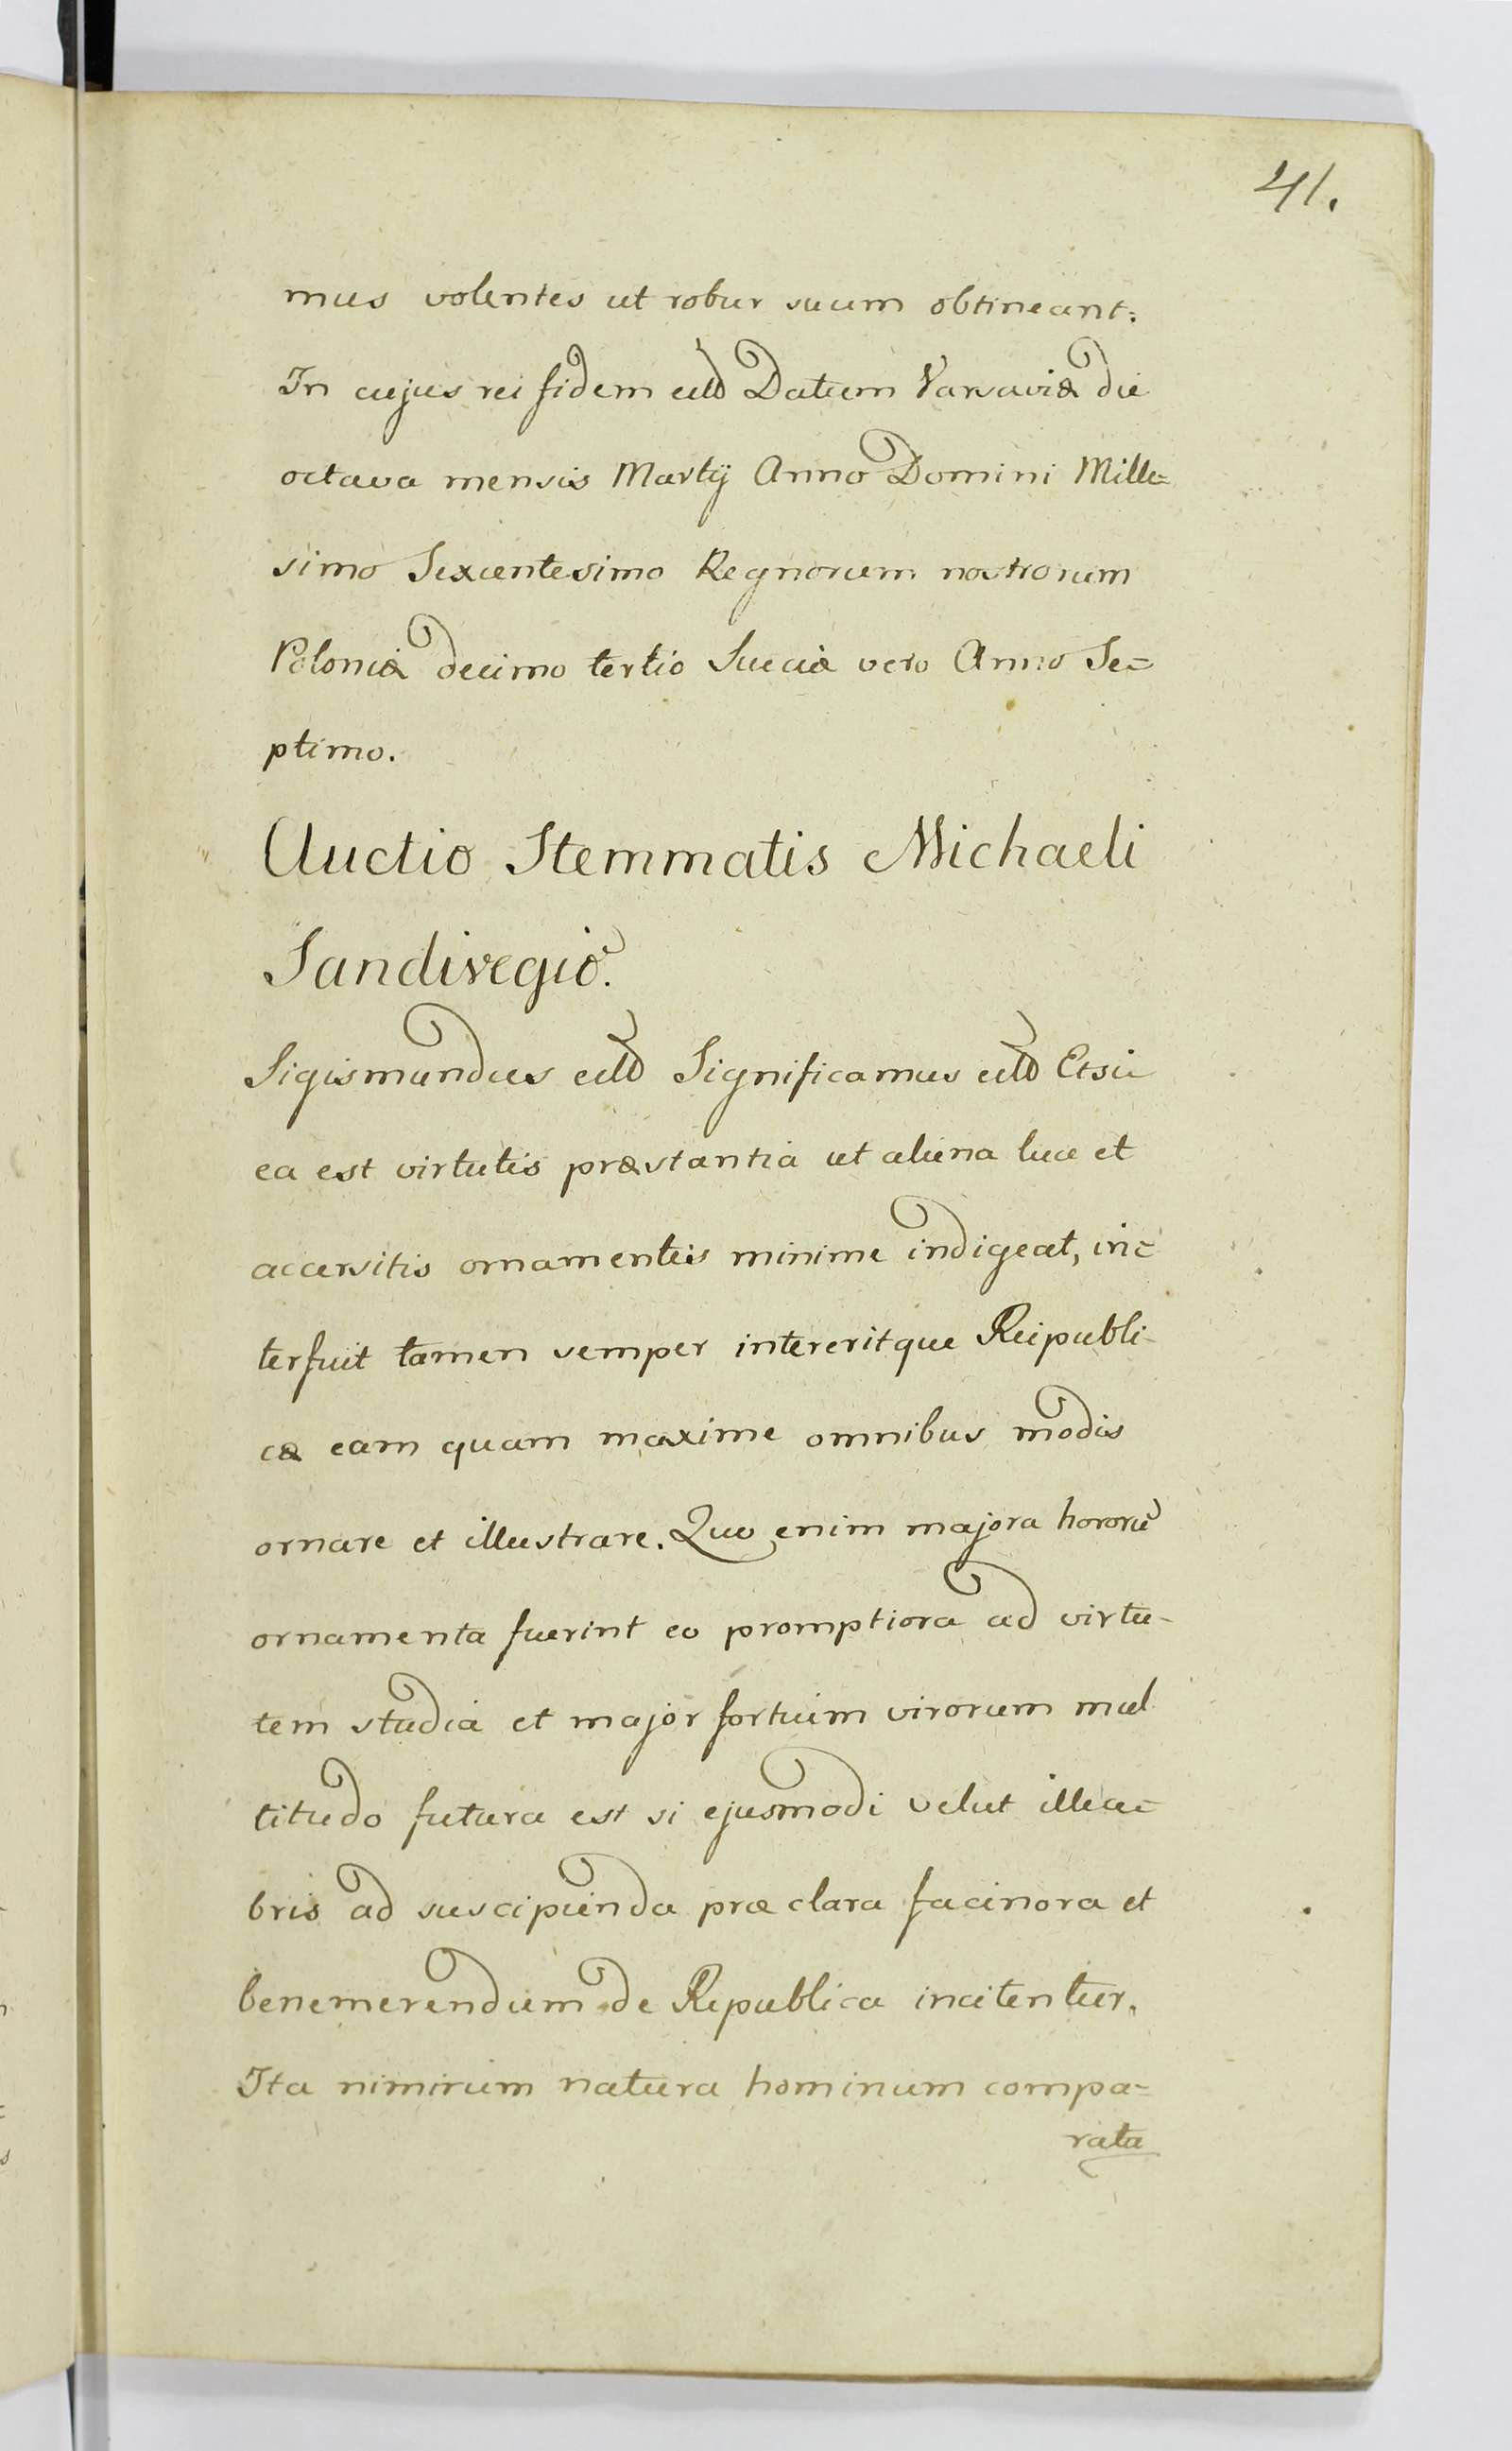 41.
mus volentes ut robur suum obtineant.
In cujus rei fidem etc Datum Varsaviæ die
octava mensis Martij Anno Domini Mille=
simo Sexcentesimo Regnorum nostrorum
Poloniæ decimo tertio Sueciæ vero Anno Se=
ptimo.
Auctio Stemmatis Michaeli
Sandivegio.
Sigismundus etc Significamus etc Etsi
ea est virtutis præstantia ut aliena luce et
accersitis ornamentis minime indigeat, in=
terfuit tamen semper intereritque Reipubli-
cæ eam quam maxime omnibus modis
ornare et illustrare. Quo enim majora honorũ
ornamenta fuerint eo promptiora ad virtu-
tem studia et major fortium virorum mul
titudo futura est si ejusmodi velut illece=
bris ad suscipienda præclara facinora et
benemerendum de Republica incitentur.
Ita nimirum natura hominum compa=
rata